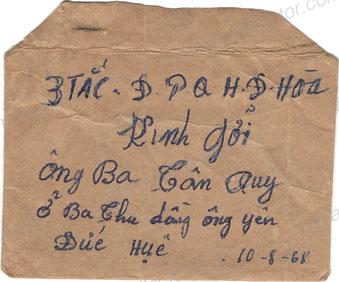 3 TẮC . Đ. P Q H. Đ. HOÀ
Kinh gởi
ông Ba Tân Quy
ở Ba Thu dồng ông yên
Đức Huệ . 10-8-68